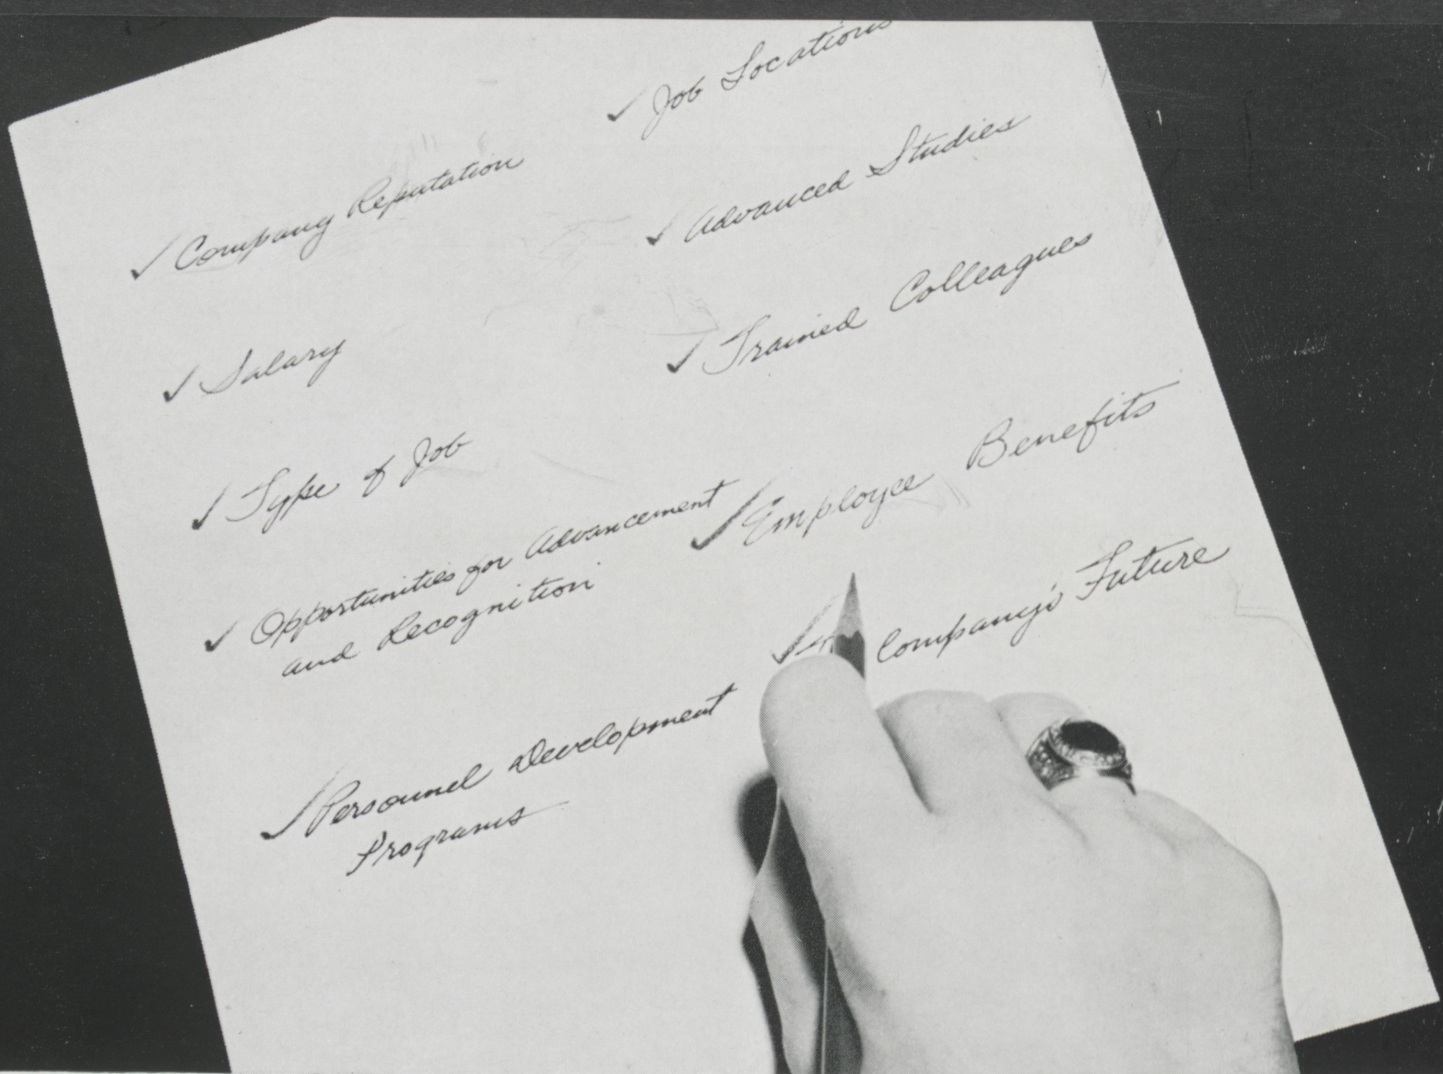 ✓ Company Reputation
✓ Salary
✓ Type of Job
✓ Opportunities for Advancement
and Recognition
✓ Personnel Development
Programs
✓ Job Locations
✓ Advanced Studies
✓ Trained Colleagues
✓ Employee Benefits
✓ Company's Future